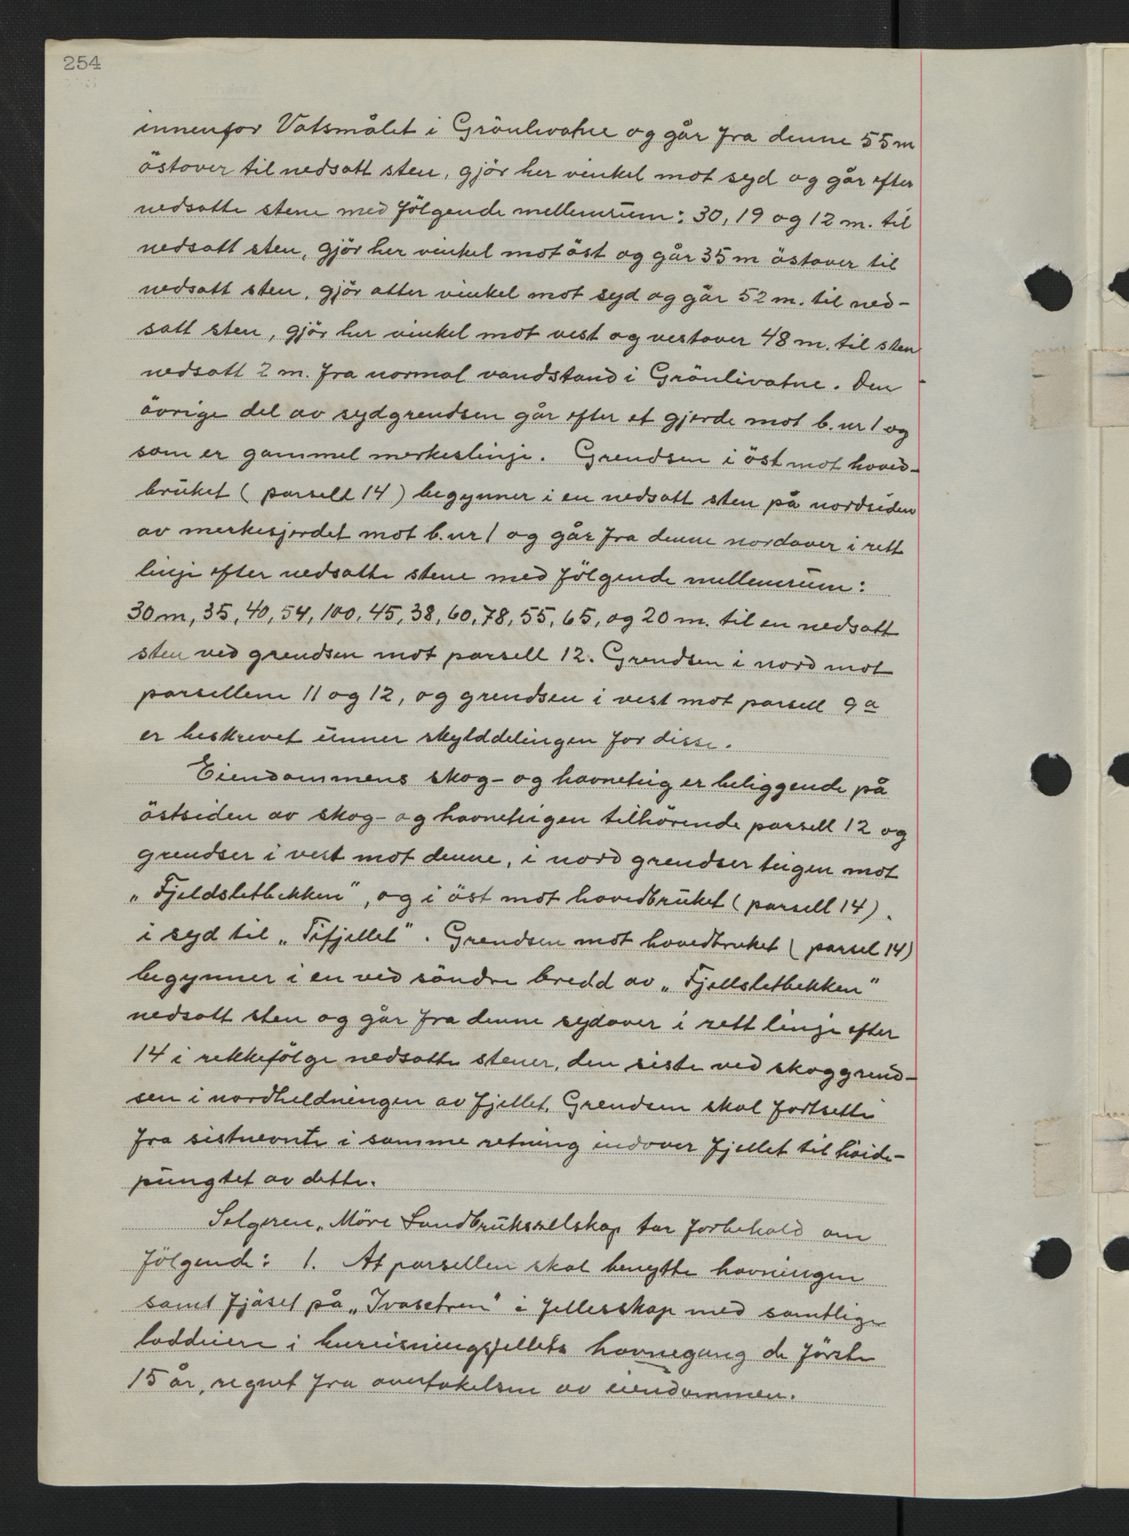 254
innenfor Vatsmålet i Grönlivatne og går fra denne 55 m
östover til nedsatt sten, gjör her vinkel mot syd og går efter
nedsatte stene med följgende mellemrum: 30, 19 og 12 m. til
nedsatt sten, gjör her vinkel mot öst og går 35 m östover til
nedsatt sten, gjör atter vinkel mot syd og går 52 m. til ned-
satt sten, gjör her vinkel mot vest og vestover 48 m. til sten
nedsatt 2 m. fra normal vandstand i Grönlivatne. Den
övrige del av sydgrendsen går efter et gjerde mot b. nr 1 og
som er gammel merkeslinje. Grendsen i öst mot hoved-
bruket ( parsell 14 ) begynner i en nedsatt sten på nordsiden
av merkesjerdet mot b. nr 1 og går fra denne nordover i rett
linje efter nedsatte stene med fölgende mellemrum:
30 m, 35, 40, 54, 100, 45, 38, 60, 78, 55, 65, og 20 m. til en nedsatt
sten ved grendsen mot parsell 12. Grendsen i nord mot
parsellene 11 og 12, og grendsen i vest mot parsell 9 a
er beskrevet unner skylddelingen for disse.
Eiendommens skog- og havneteig er beliggende på
östsiden av skog- og havneteigen tilhörende parsell 12 og
grendser i vest mot denne, i nord grendser teigen mot
„Fjeldsletbekken", og i öst mot hovedbruket ( parsell 14 ).
i syd til „Tifjellet". Grendsen mot hovedbruket ( parsel 14)
begynner i en ved söndre bredd av „Fjellsletbekken"
nedsatt sten og går fra denne sydover i rett linje efter
14 i rekkefölge nedsatte stener, den siste ved skoggrend-
sen i nordheldningen av fjellet. Grendsen skal fortsette
fra sistnevnte i samme retning indover fjellet til höide-
pungtet av dette.
Selgeren, Möre Landbruksselskap tar forbehold om
fölgende: 1. At parsellen skal benytte havningen
samt fjöset på „Ivasetren" i fellesskap med samtlige
loddeiere i bureisningsfeltets havnegang de förste
15 år, regnet fra overtakelsen av eiendommen.